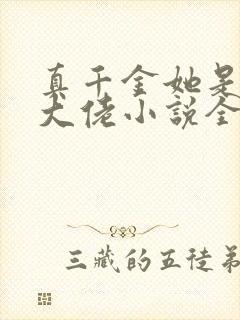 真千金她是
大佬小说全
三藏的五徒弟